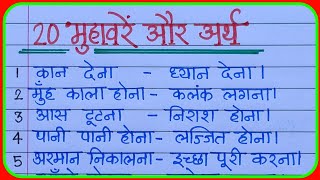 20 मुहावरें और अर्थ
1 कान देना - ध्यान देना।
2 मुँह काला होना - कलंक लगना।
3 आस टूटना - निराश होना।
4 पानी पानी होना - लज्जित होना।
5 अरमान निकालना - इच्छा पूरी करना।